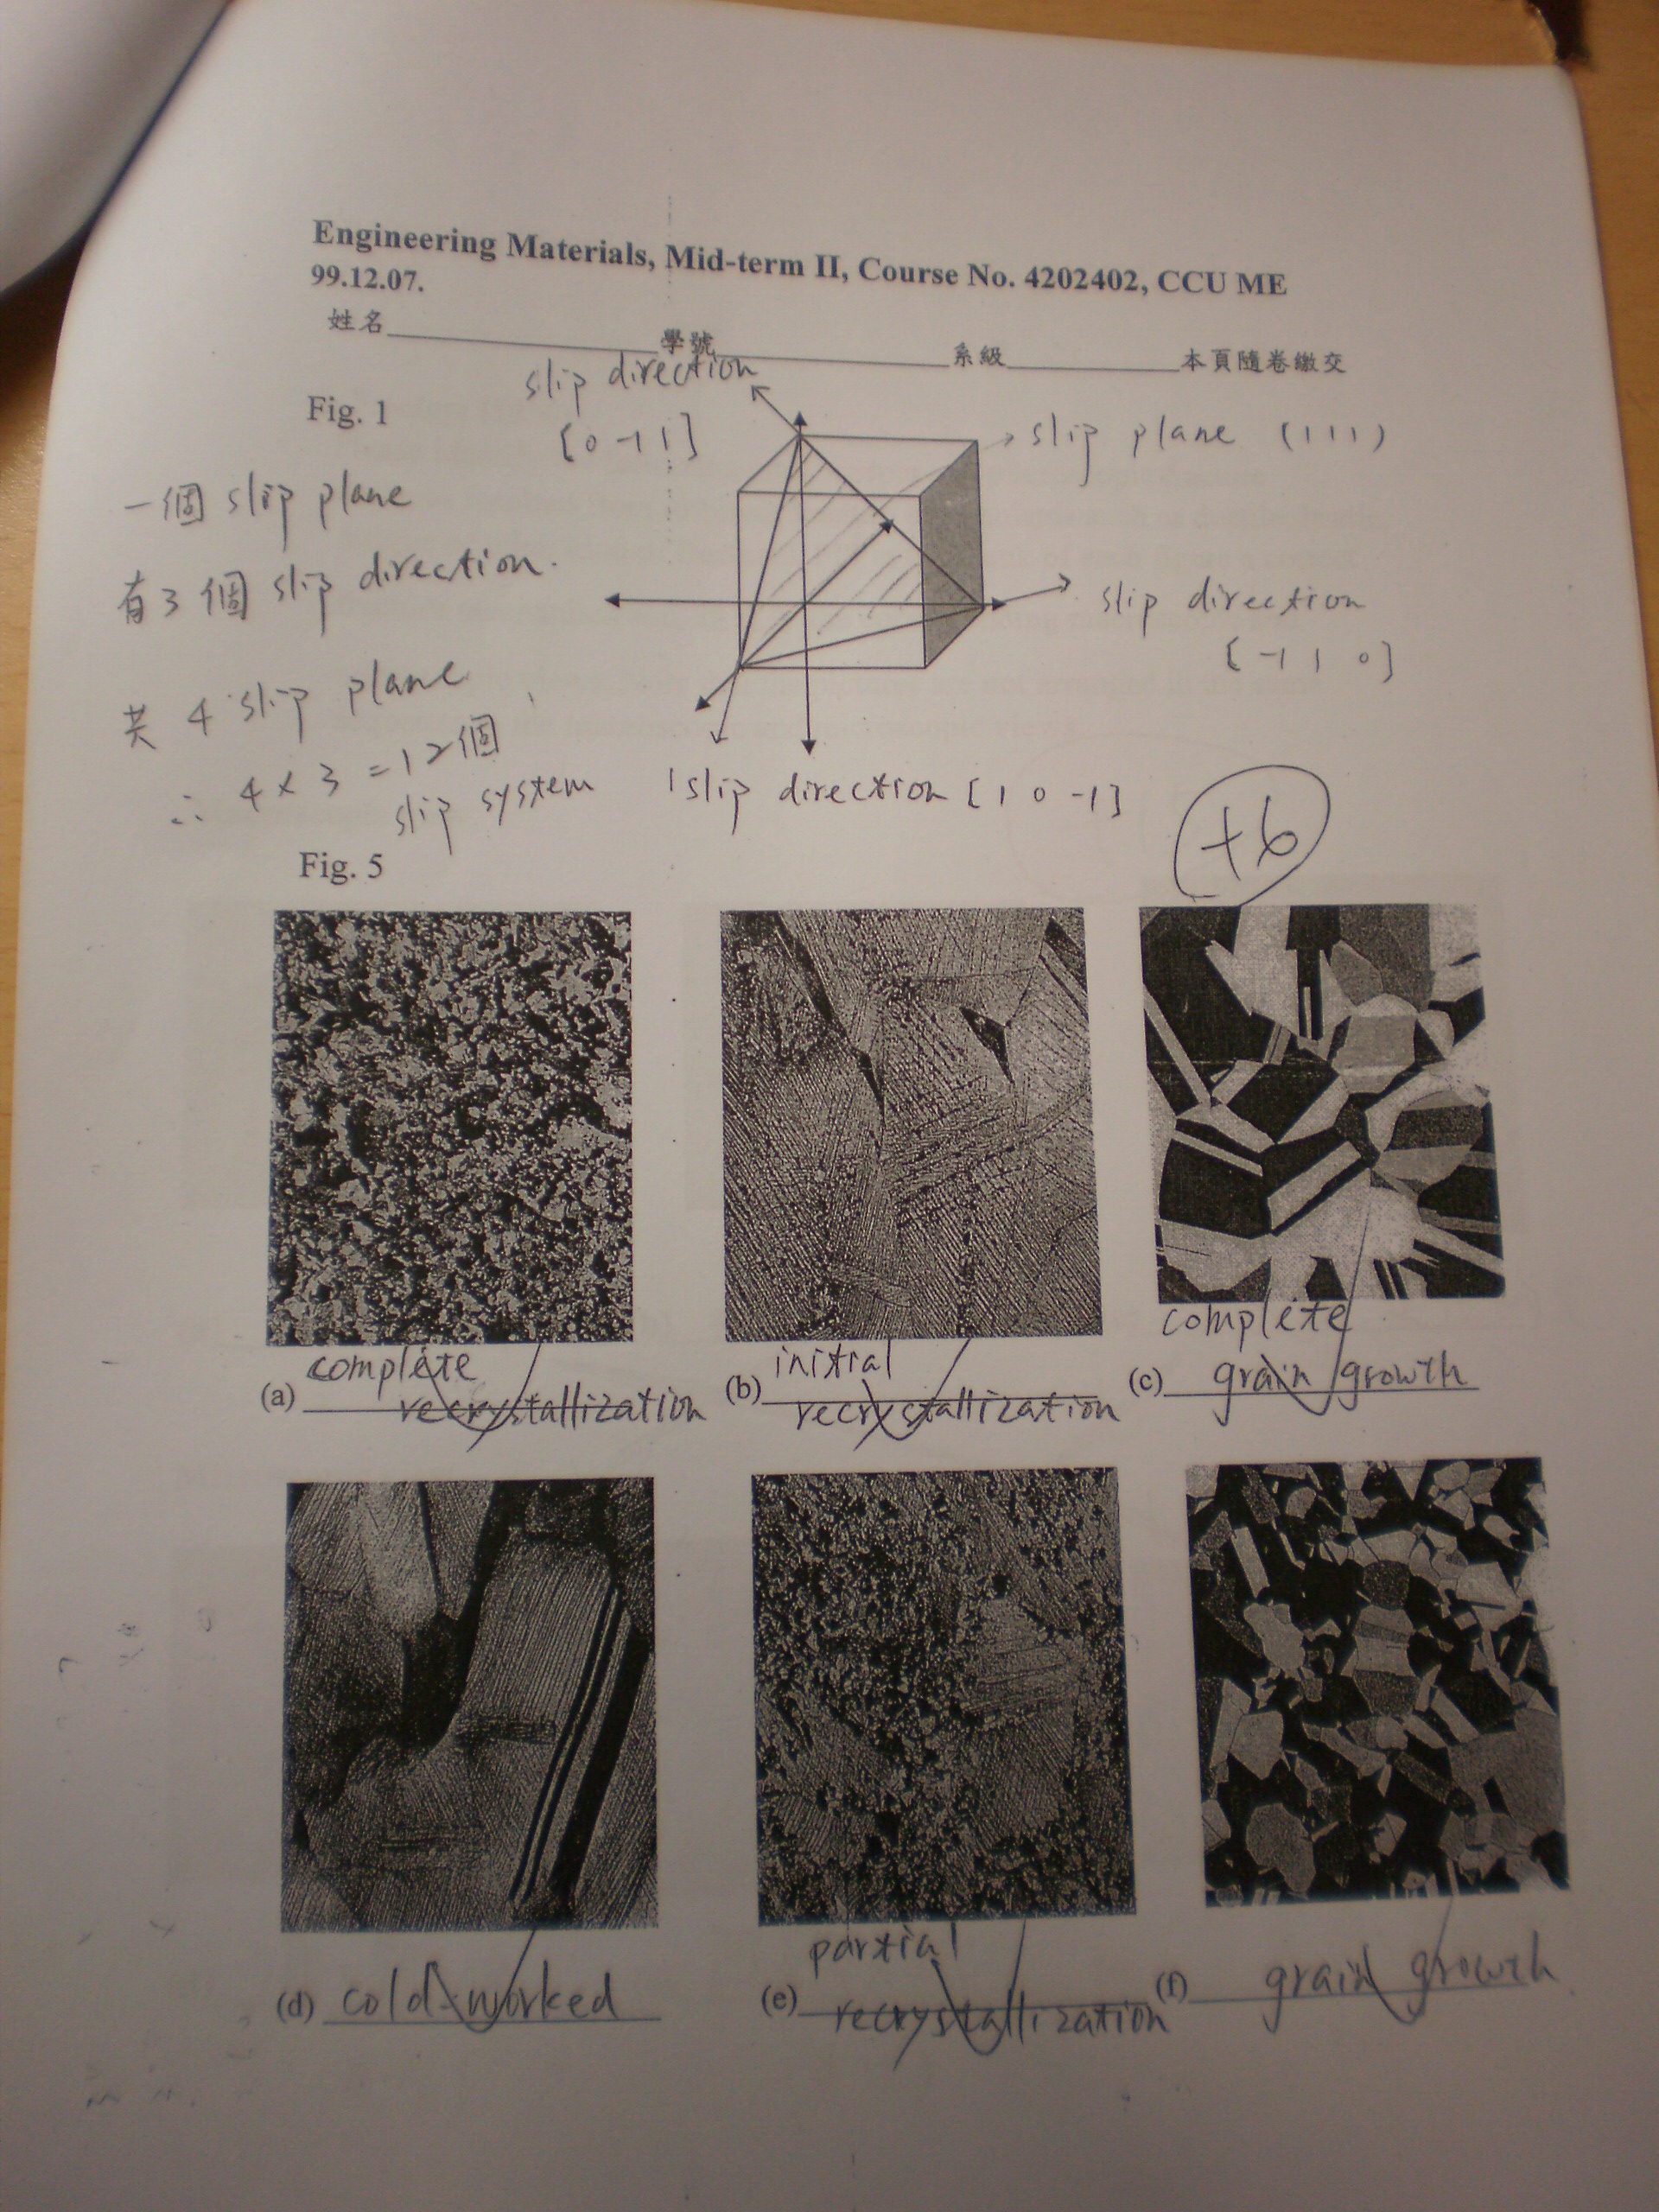 Engineering Materials, Mid-term II, Course No. 4202402, CCU ME
99.12.07.
姓名 學號 系級 本頁隨卷繳交
Fig. 1
slip direction
[0 -1 1]
slip plane (1 1 1)
一個 slip plane
有 3 個 slip direction.
slip direction
[-1 1 0]
共 4 slip plane
∴ 4 × 3 = 12個
slip system
slip direction [1 0 -1]
+6
Fig. 5
(a) complete
recrystallization
(b) initial
recrystallization
(c) complete
grain growth
(d) cold-worked
(e) partial
recrystallization
(f) grain growth